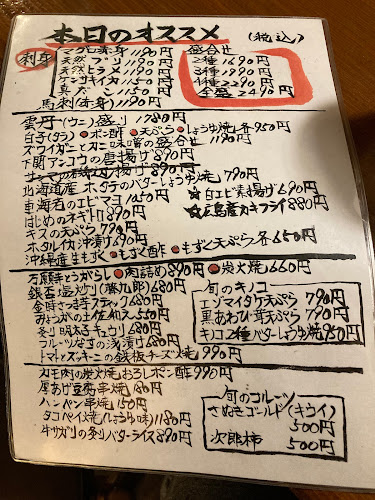 本日のオススメ (税込)
刺身
マグロ赤身 1190円
天然ブリ 1190円
天然ヒラメ 1190円
アオリイカ 1190円
真ダコ 1150円
馬刺(赤身) 1190円
盛合せ
2種 1690円
3種 1990円
全盛 2490円
雲丹(ウニ)盛り 1780円
白子(タラ) ポン酢 天ぷら しょうゆ焼 各950円
ズワイガニとカニ味噌の盛合せ 1190円
下関アンコウの唐揚げ 890円
北海道産ホタテのバターしょうゆ焼 790円
東海名のエビマヨ 1050円
☆白エビ素揚げ 690円
はじめのネギトロ 890円
☆広島産カキフライ 880円
キスの天ぷら 790円
ホタルイカ沖漬け 690円
沖縄産生もずく もずく酢 もずく天ぷら 各650円
万願寺とうがらし 肉詰め 890円 炭火焼 660円
銀杏塩炒り(藤九郎) 680円
金時いもスティック 680円
みょうがの土佐和え 550円
炙り明太子キュウリ 680円
フルーツなすの浅漬け 680円
トマトとズッキーニの鉄板チーズ焼 990円
旬のキノコ
エゾマイタケ天ぷら 790円
黒あわび茸天ぷら 790円
キノコ2種バターしょうゆ焼 950円
カモ肉の炭火焼おろしポン酢 990円
厚あげ豆腐串焼 180円
ハンペン串焼 150円
タコペイ焼(しょうゆ味) 1180円
牛サガリの炙りバターライス 890円
旬のフルーツ
さぬきゴールド(キウイ)
500円
次郎柿 500円